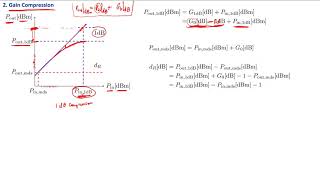 2. Gain Compression
P_out[dBm]
P_out,1dB
P_out,mds
1dB
d_R
P_in,mds
P_in,1dB
P_in[dBm]
1 dB compression
P_out,1dB[dBm] = G_1dB[dBm] + P_in,1dB[dBm]
= G_0[dBm] − 1dB + P_in,1dB[dBm]
P_out,mds[dBm] = P_in,mds[dBm] + G_0[dBm]
d_R[dB] = P_out,1dB[dBm] − P_out,mds[dBm]
= P_in,1dB[dBm] + G_0[dB] − 1 − P_out,mds[dBm]
= P_in,1dB[dBm] − P_in,mds[dBm] − 1